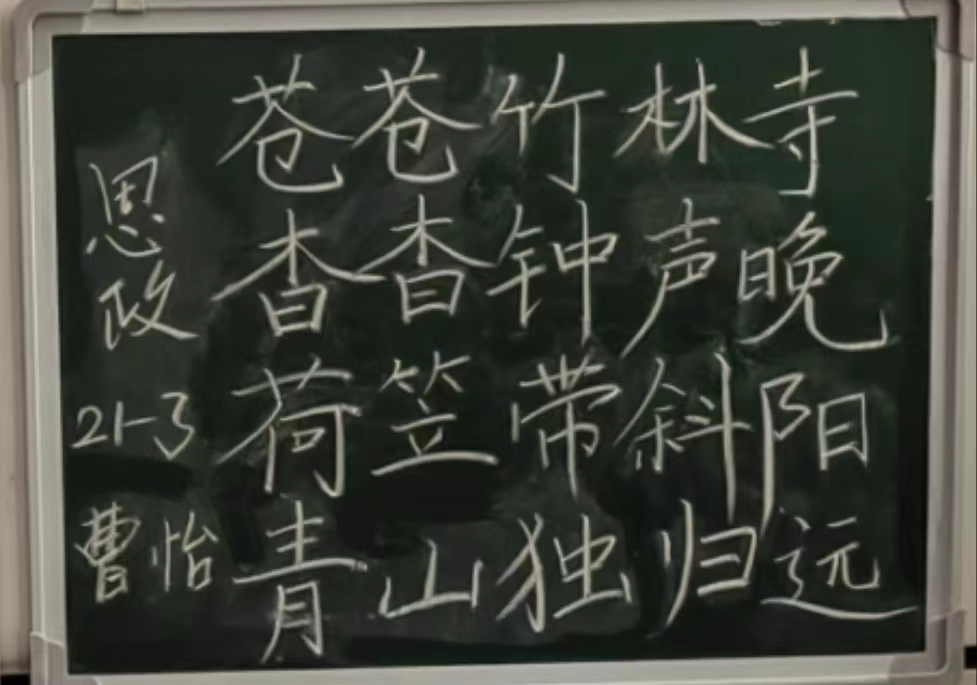 苍苍竹林寺
杳杳钟声晚
荷笠带斜阳
青山独归远
思政
21-3
曹怡